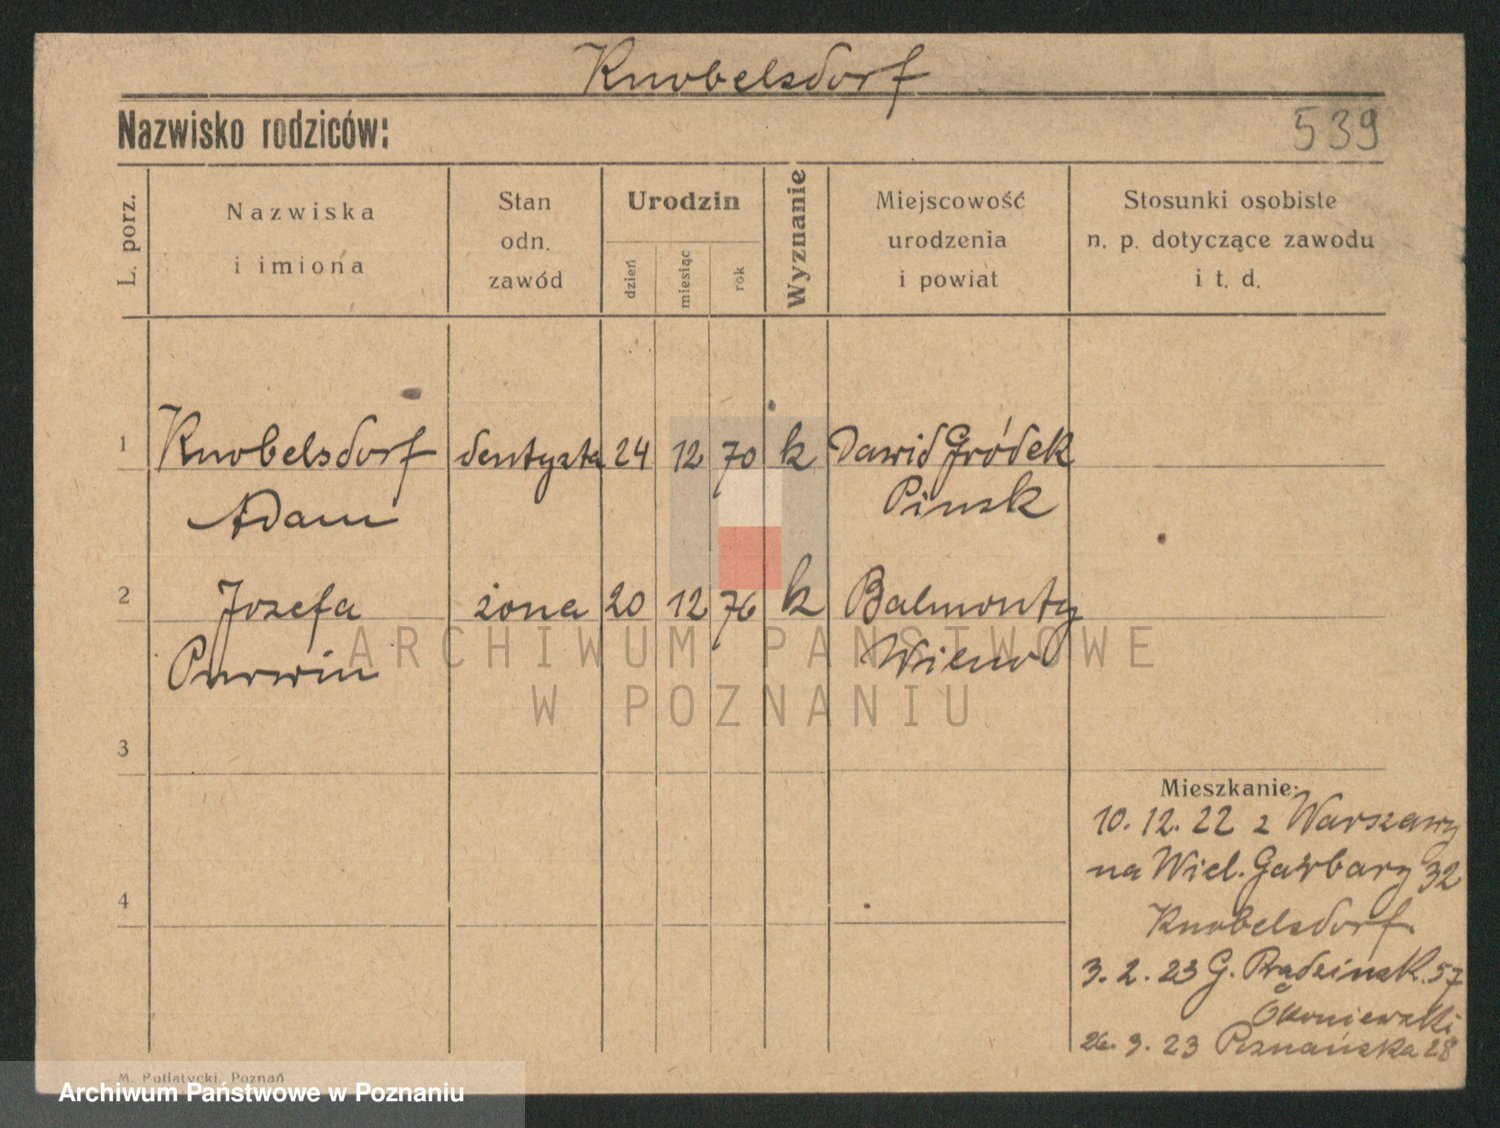 Knobelsdorf
Nazwisko rodziców:
539
L. porz.
Nazwiska
i imiona
Stan
odn.
zawód
Urodzin
dzień
miesiąc
rok
Wyznanie
Miejscowość
urodzenia
i powiat
Stosunki osobiste
n. p. dotyczące zawodu
i t. d.
1 Knobelsdorf dentysta 24 12 70 k Dawid Gródek
Adam Pinsk
2 Jozefa żona 20 12 76 k Balmonty
Purwin Wilno
3
4
Mieszkanie:
10. 12. 22 z Warszawy
na Wiel. Garbary 32
Knobelsdorf
3. 2. 23 G. Prądzinsk. 57
Okoniewski
26. 3. 23 Poznańska 28
M. Putiatycki, Poznań
ARCHIWUM PAŃSTWOWE
W POZNANIU
Archiwum Państwowe w Poznaniu